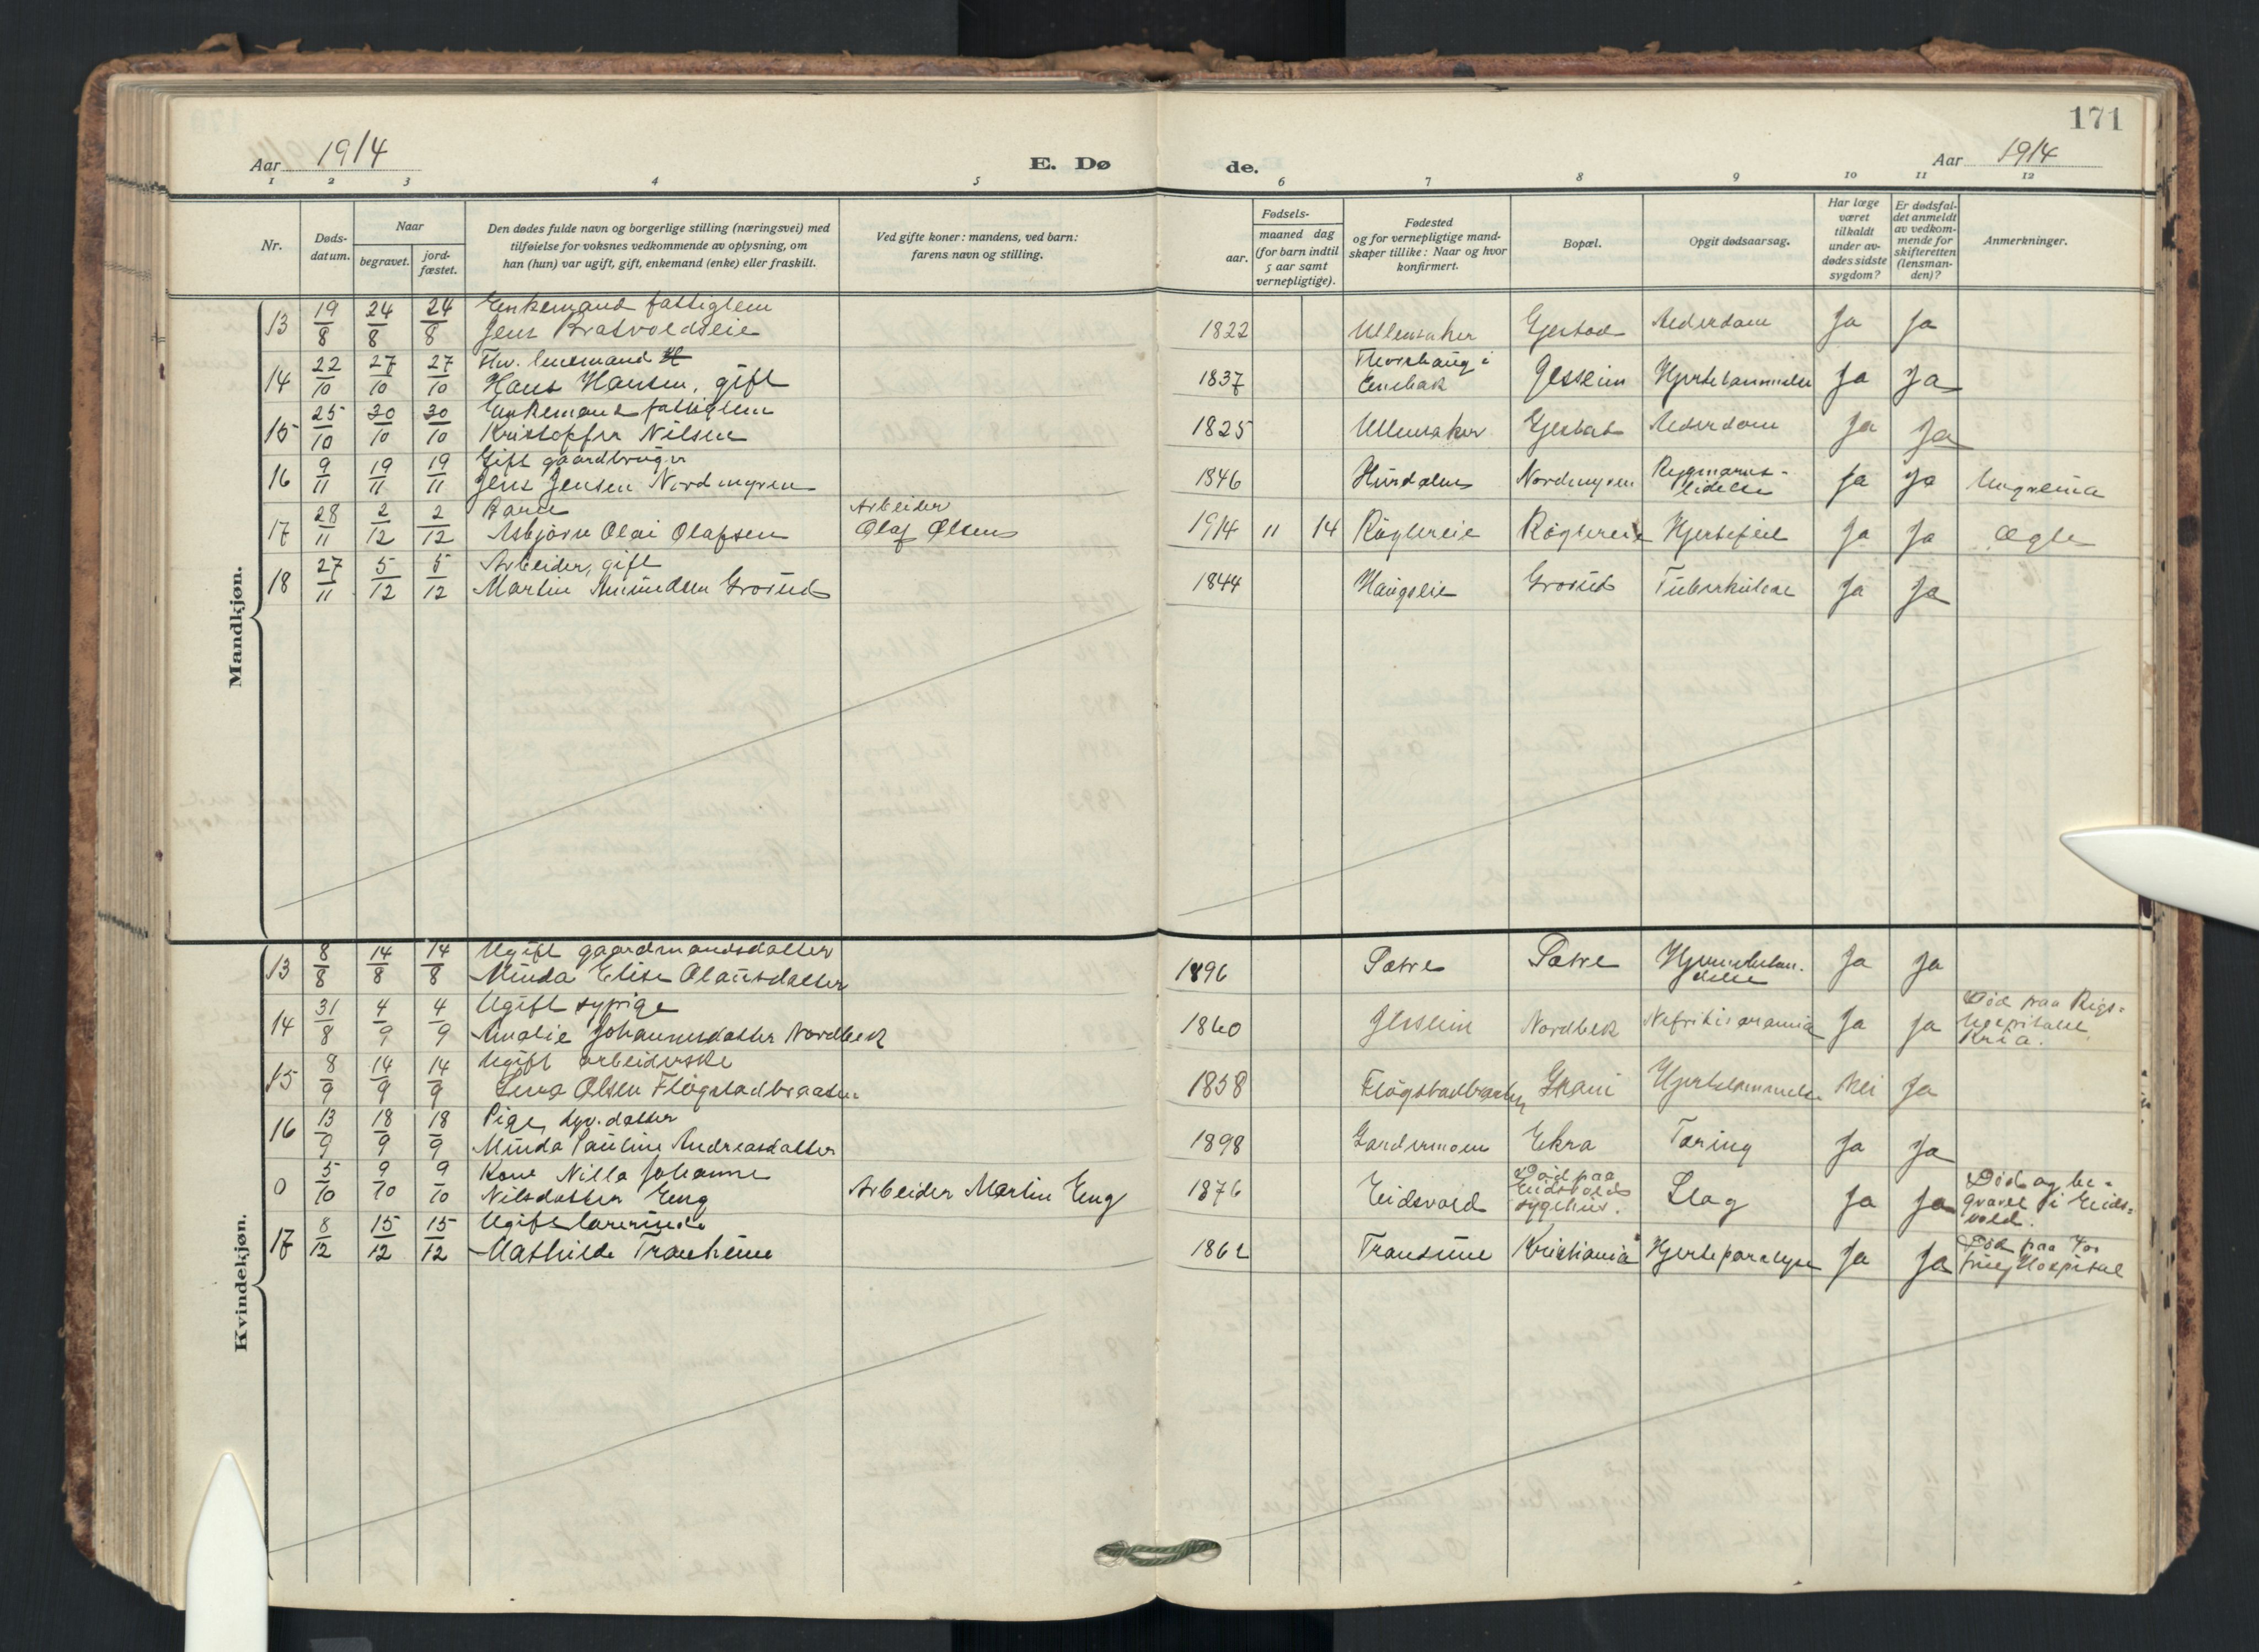 171
Aar 1914
E. Dø
de.
Aar 1914
1 2 3 4 5 6 7 8 9 10 11 12
Nr.
Døds-
datum.
Naar
begravet.
jord-
fæstet.
Den dødes fulde navn og borgerlige stilling (næringsvei) med
tilføielse for voksnes vedkommende av oplysning, om
han (hun) var ugift, gift, enkemand (enke) eller fraskilt.
Ved gifte koner: mandens, ved barn:
farens navn og stilling.
Fødsels-
aar.
maaned dag
(for barn indtil
5 aar samt
vernepligtige).
Fødested
og for vernepligtige mand-
skaper tillike: Naar og hvor
konfirmert.
Bopæl.
Opgit dødsaarsag.
Har læge
været
tilkaldt
under av-
dødes sidste
sygdom?
Er dødsfal-
det anmeldt
av vedkom-
mende for
skifteretten
(lensman-
den)?
Anmerkninger.
Mandkjøn.
13 19/8 24/8 24/8 Enkemand fattiglem
Jens Bratvoldseie 1822 Ullensaker Gjestad Alderdom Ja Ja
14 22/10 27/10 27/10 Fhv. lensmand
Hans Hansen, gift 1837 Thorshaug i
Enebak Jessheim Hjertelammelse Ja Ja
15 25/10 30/10 30/10 Enkemand fattiglem
Kristopfer Nilsen 1825 Ullensaker Gjestad Alderdom Ja Ja
16 9/11 19/11 19/11 Gift gaardbruger
Jens Jensen Nordmyren 1846 Hurdalen Nordmyren Rygmarvs-
lidelse Ja Ja
17 28/11 2/12 2/12 Barn
Asbjørn Olai Olafsen Arbeider
Olaf Olsen 1914 11 14 Røglereie Røglereie Hjertefeil Ja Ja Ægte
18 27/11 5/12 5/12 Arbeider, gift
Martin Amundsen Grorud 1844 Haugseie Grorud Tuberkulose Ja Ja
Kvindekjøn.
13 8/8 14/8 14/8 Ugift gaardmandsdatter
Minda Elise Olausdatter 1896 Sætre Sætre Ja Ja
14 31/8 4/9 4/9 Ugift sypige
Amalie Johannesdatter Nordbek 1860 Jessheim Nordbek Ja Ja Død paa Rigs-
hospitalet,
Kr.a.
15 8/9 14/9 14/9 Ugift arbeiderske
Lena Olsen Fløgstadbraaten 1858 Fløgstadbraaten Hjertelammelse Nei Ja
16 13/9 18/9 18/9 Pige, datter
Minda Pauline Andreasdatter 1898 Gardermoen Ekra Tæring Ja Ja
0 5/10 9/10 9/10 Kone Nilla Johanne
Nilsdatter Eng Arbeider Martin Eng 1876 Eidsvold Død paa
Eidsvolds
sygehus. Slag Ja Ja Død og be-
gravet i Eids-
vold.
17 8/12 15/12 15/12 Ugift lærerinde
Mathilde Tranheim 1862 Kristiania Hjerteparalyse Ja Ja Død paa
Hospital